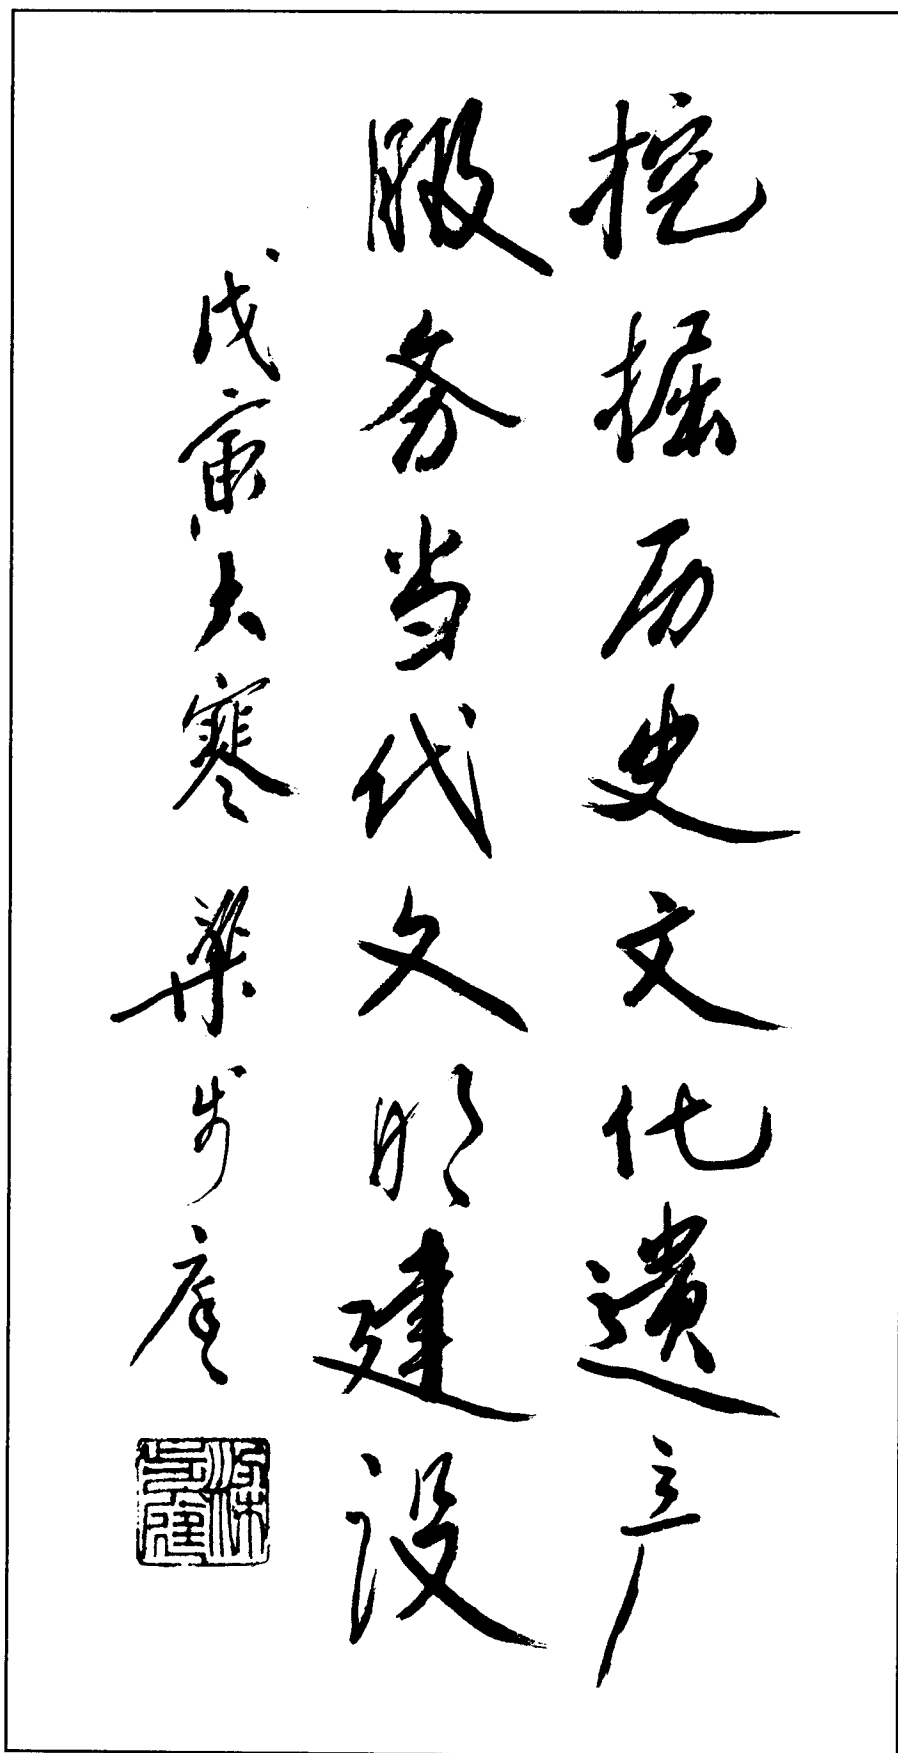 挖掘历史文化遗产
服务当代文明建设
戊寅大寒 梁步庭